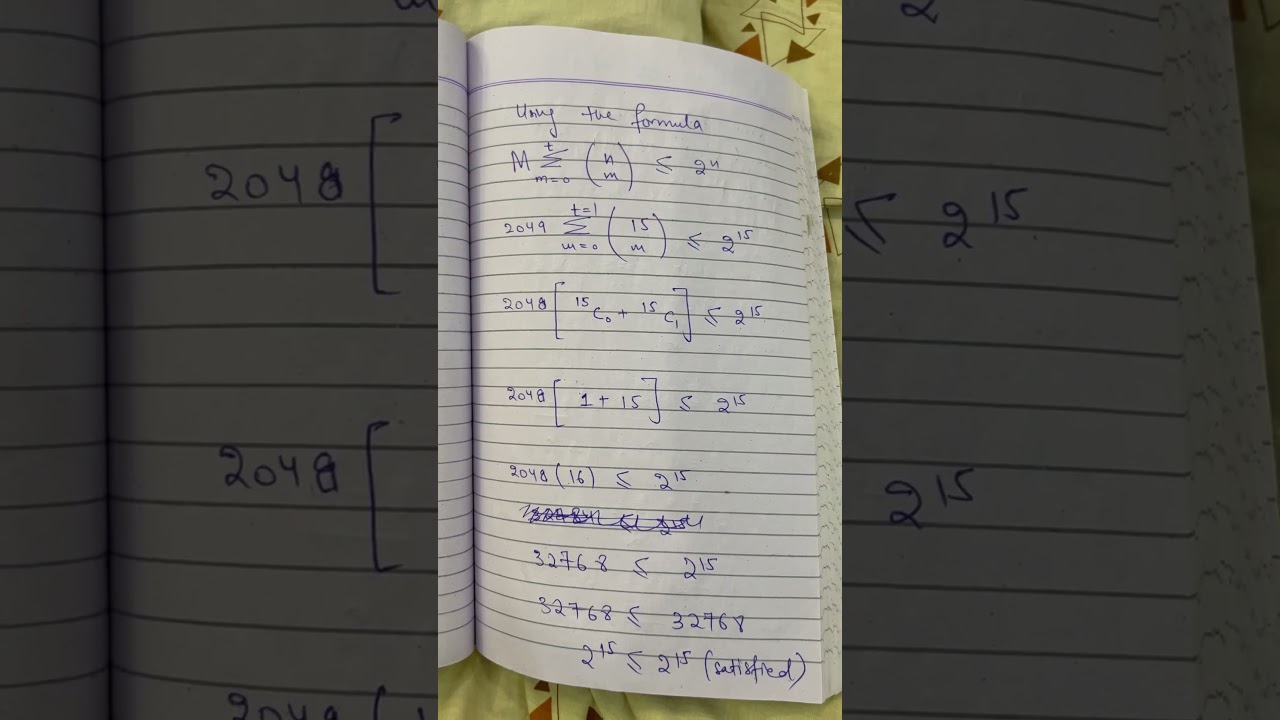 Using the formula
M t∑m=0 (n m) ≤ 2^n
2049 t=1∑m=0 (15 m) ≤ 2^15
2048 [ ¹⁵C₀ + ¹⁵C₁ ] ≤ 2^15
2048 [ 1 + 15 ] ≤ 2^15
2048 (16) ≤ 2^15
32768 ≤ 2^15
32768 ≤ 32768
2^15 ≤ 2^15 (satisfied)